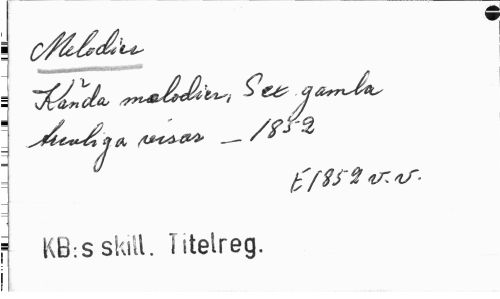 Melodier
Kända melodier, Sex gamla
trevliga visor – 1852
E 1852 v.v.
KB:s skill. Titelreg.